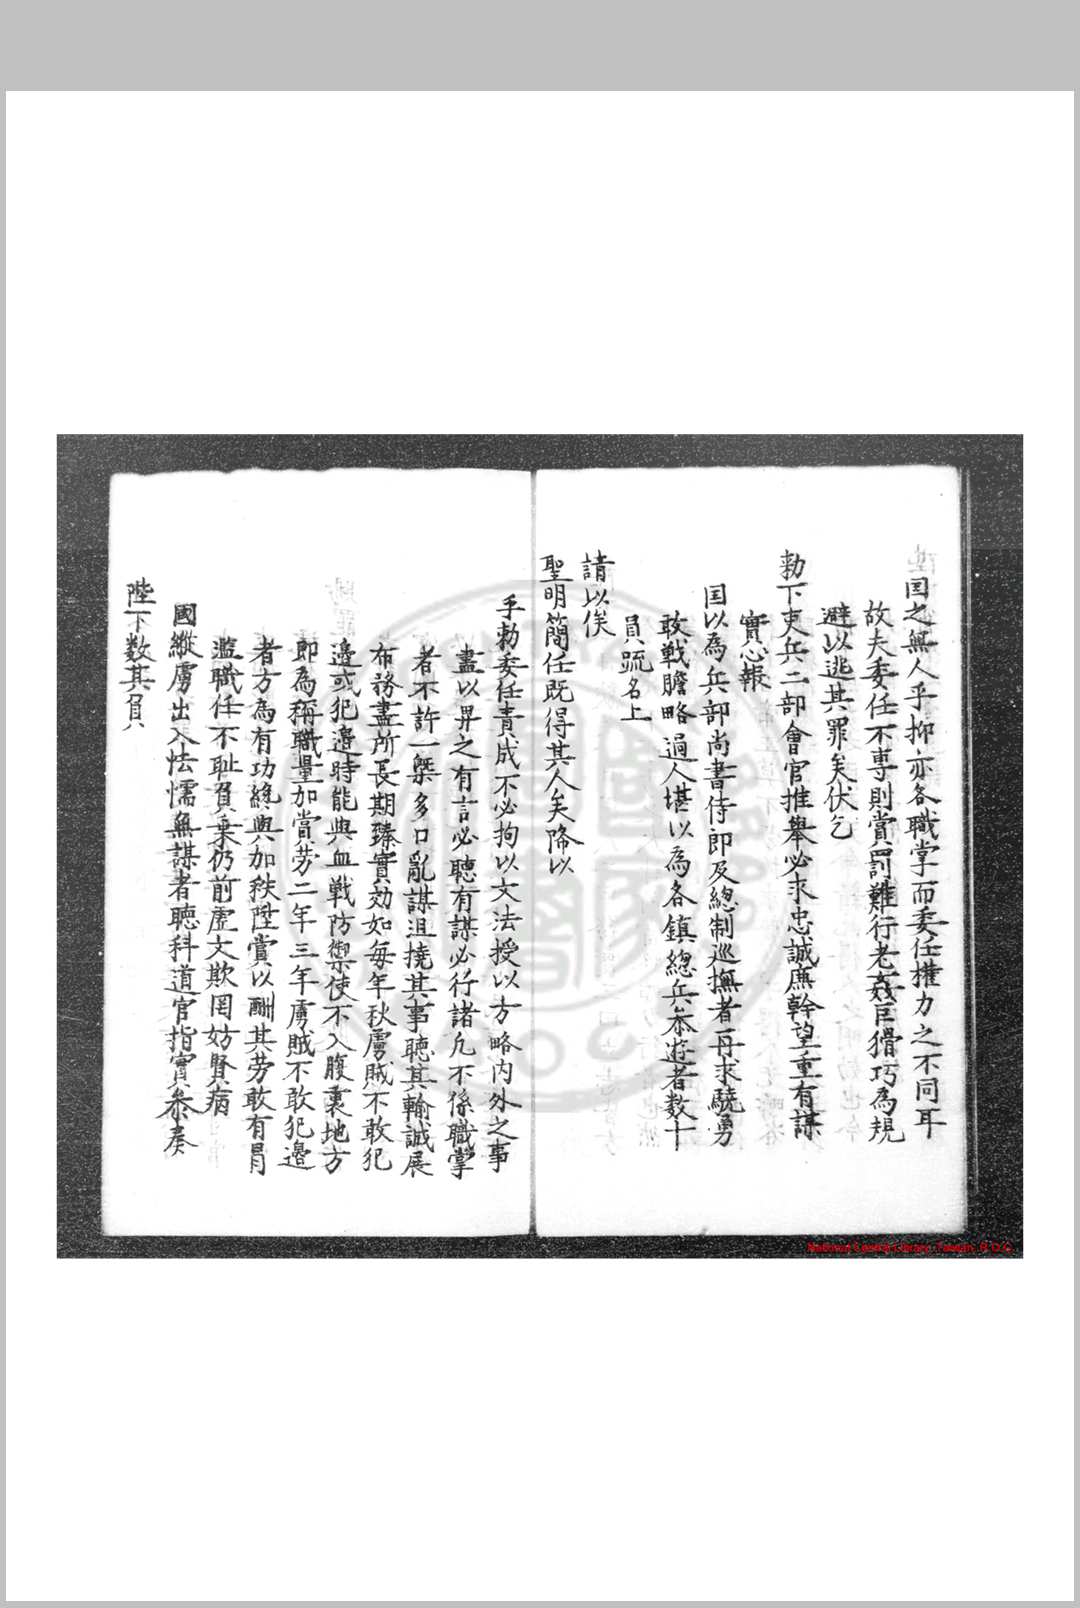 国之無人乎抑亦各職掌而委任權力之不同耳
故夫委任不專則賞罰難行老姦巨猾巧為規
避以逃其罪矣伏乞
勅下吏兵二部會官推舉必求忠誠廉幹望重有謀
實心報
国以為兵部尚書侍郎及總制巡撫者再求驍勇
敢戰膽略過人堪以為各鎮總兵叅遊者数十
員疏名上
請以俟
聖明簡任既得其人矣降以
手勅委任責成不必拘以文法授以方略內外之事
盡以畀之有言必聽有謀必行諸凡不係職掌
者不許一槩多口亂謀沮撓其事聽其輸誠展
布務盡所長期臻實効如每年秋虜賊不敢犯
邊或犯邊時能與血戰防禦使不入腹裏地方
即為稱職量加賞劳二年三年虜賊不敢犯邊
者方為有功總與加秩陞賞以酬其劳敢有冐
濫職任不耻負乗仍前虛文欺罔妨賢病
國縱虜出入怯懦無謀者聽科道官指實叅奏
陛下数其負
National Central Library, Taiwan, R.O.C.